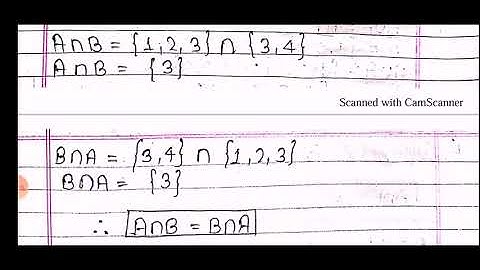 A∩B = {1,2,3} ∩ {3,4}
A∩B = {3}
Scanned with CamScanner
B∩A = {3,4} ∩ {1,2,3}
B∩A = {3}
∴ A∩B = B∩A